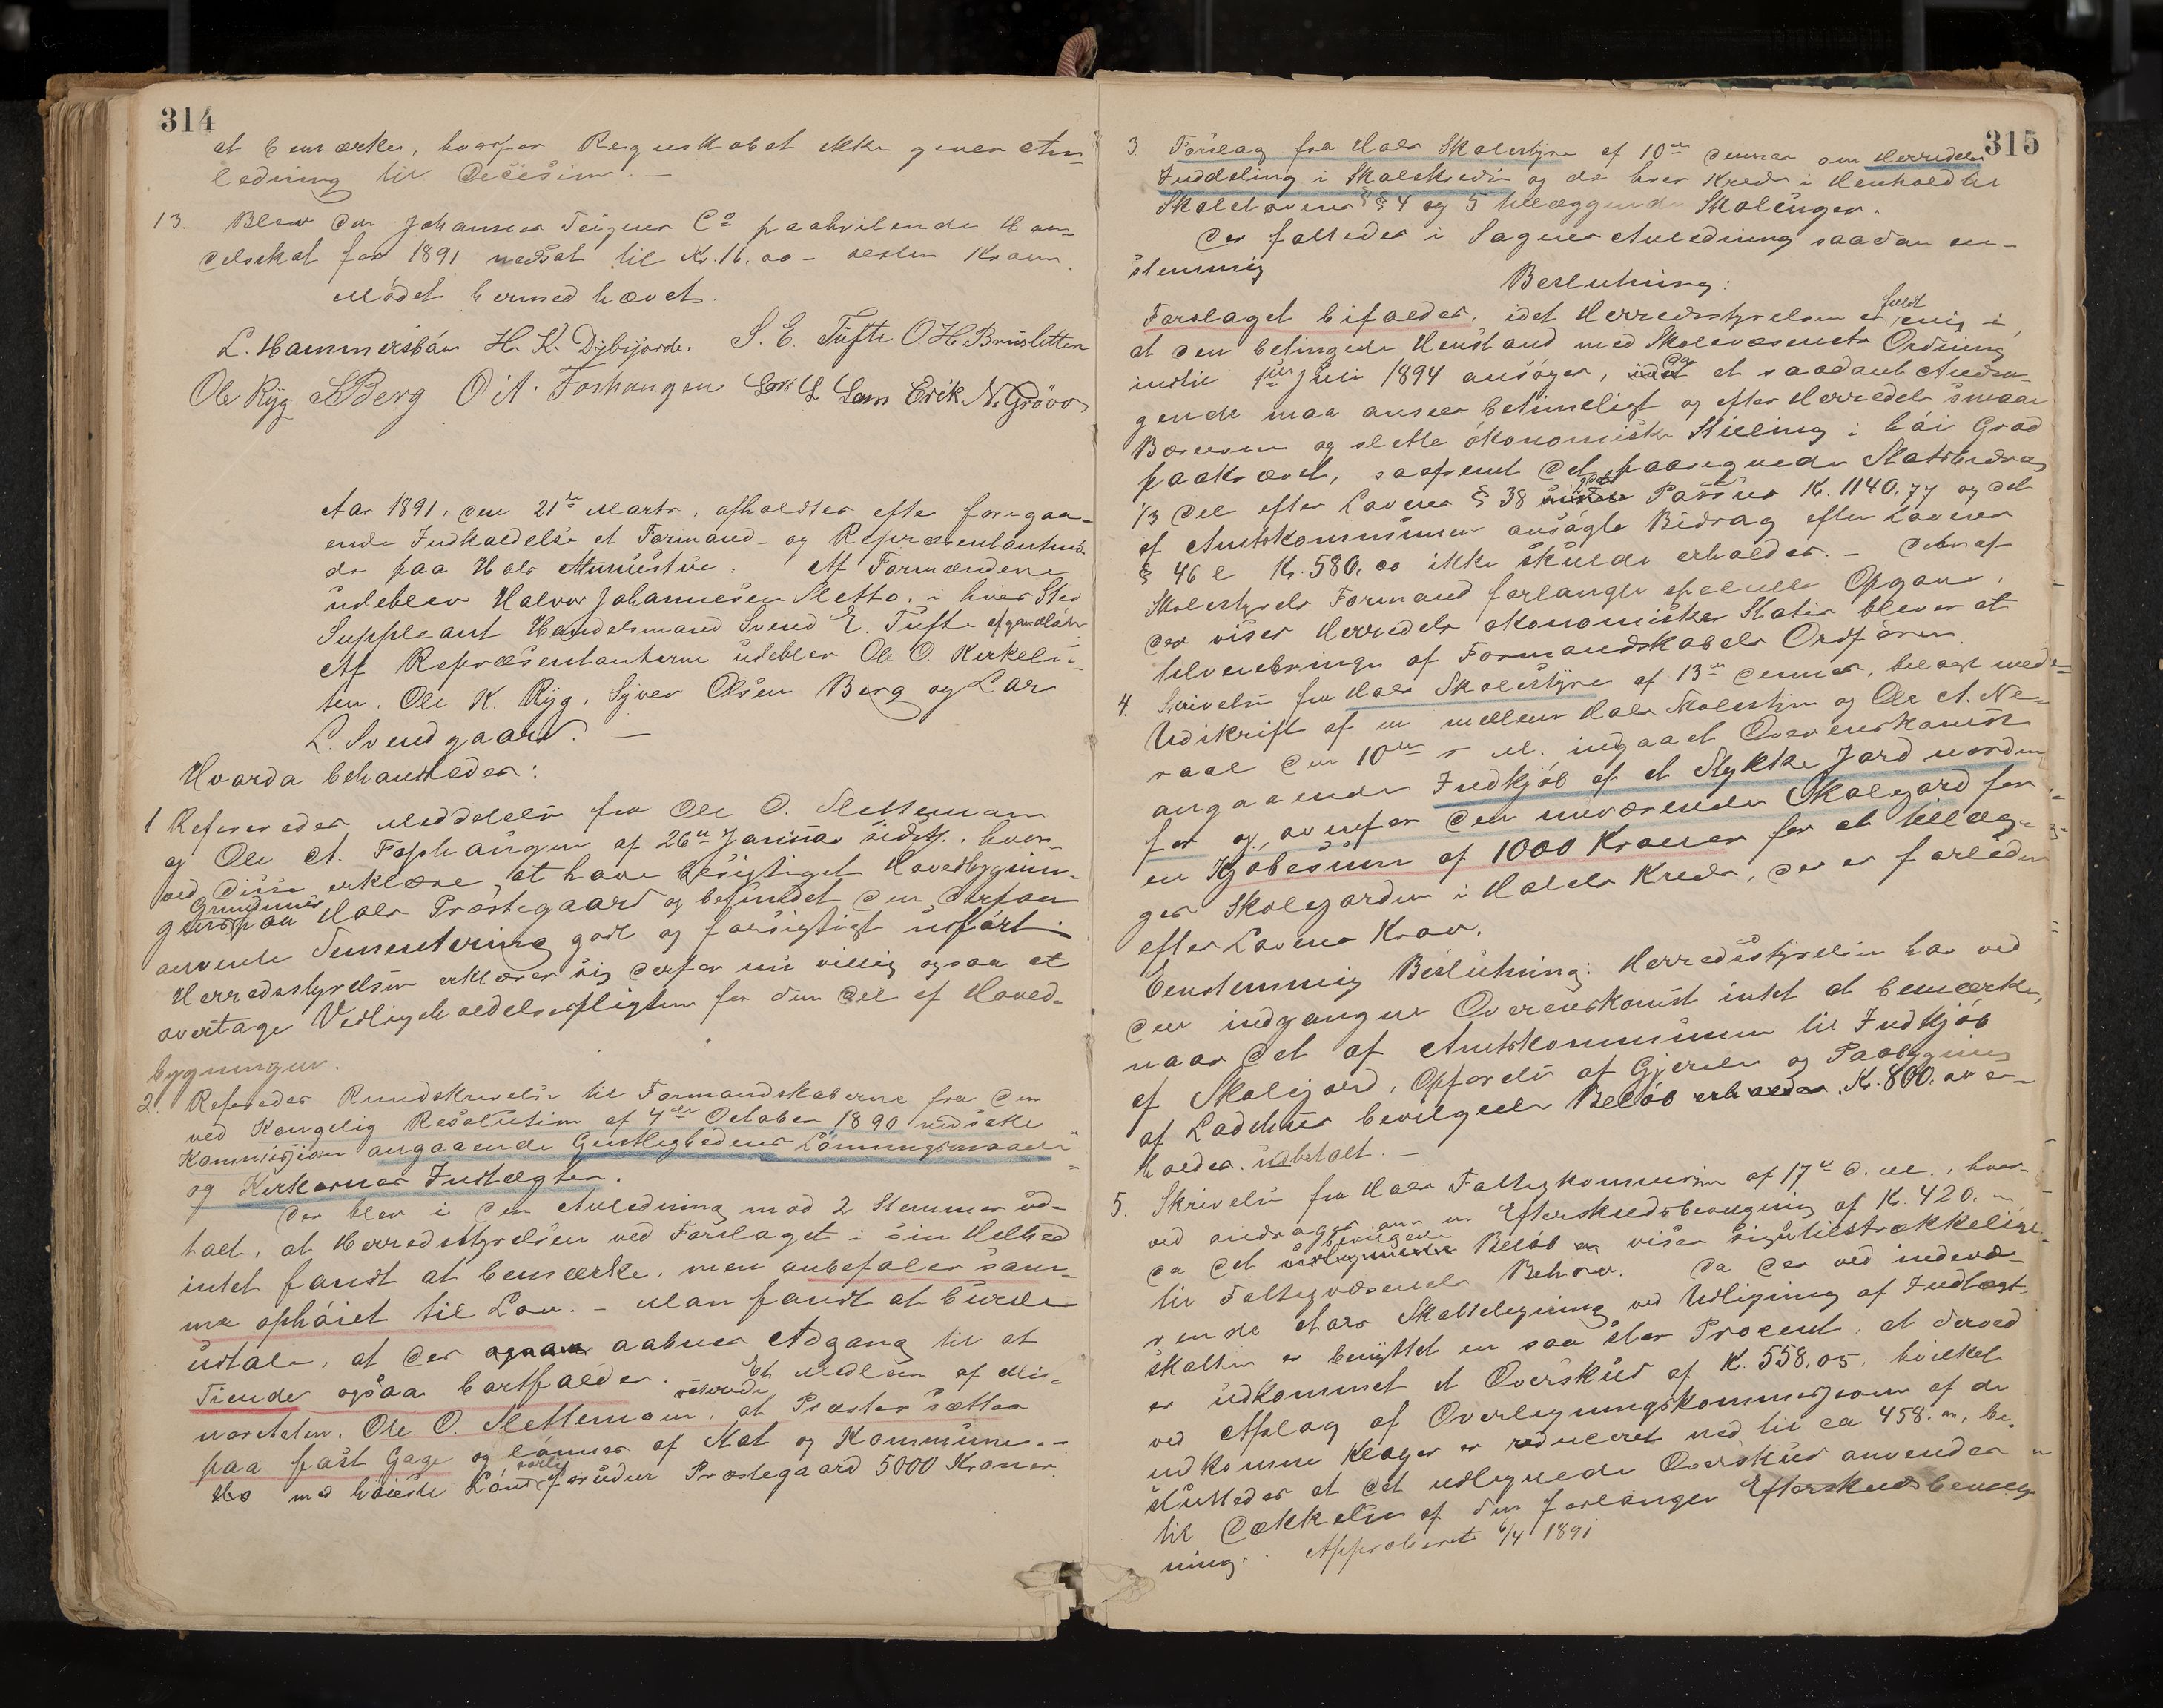 314
at bemærke, hvorfor Regnskabet ikke giver An-
ledning til Decision. —
13. Blev den Johannes Teigner Co paahvilende Han-
delsskat for 1891 nedsat til Kr. 16.00 – sexten Kroner.
Mødet hermed hævet.
L. Hammersbøn H. K. Dybsjorde. S. E. Tufte O. H. Brusletten
Ole Ryg SBerg O. A. Foshaugen Erik N. Grøvo
Aar 1891, den 21de Marts, afholdtes efter foregaa-
ende Indkaldelse et Formand- og Repræsentantmø-
de paa Hols Murustue. Af Formændene
udeblev Halvor Johannesen Sletto, i hvis Sted
Suppleant Handelsmand Svend E. Tufte
Af Repræsentanterne udeblev Ole O. Kirkeli-
ten, Ole K. Ryg, Syver Olsen Berg og Lars
L. Svendgaard. —
Hvorda behandledes:
1 Refereredes Meddelelse fra Ole O. Slettemoen
og Ole A. Foshaugen af 26de Januar sidstl., hvor-
ved disse erklære, at have besigtiget Hovedbygnin-
gens Grundmur paa Hols Præstegaard og befundet den derpaa
anvendte Sementering godt og forsigtigt udført.
Herredsstyrelsen erklærer sig derfor nu villig ogsaa at
overtage Vedligeholdelsespligten for den Del af Hoved-
bygningen.
2. Referedes Rundskrivelse til Formandskaberne fra den
ved Kongelig Resolution af 4de October 1890 nedsatte
Kommission angaaende Geistlighedens Lønningsmaade
og Kirkernes Indtægter.
Der blev i den Anledning mod 2 Stemmer ud-
talt, at Herredsstyrelsen ved Forslaget i sin Helhed
intet fandt at bemærke, men anbefaler sam-
me ophøiet til Lov. – Man fandt at burde
udtale, at der aabnes Adgang til at
Tiende ogsaa bortfalder. Et Medlem af Mi-
noriteten, Ole O. Slettemoen, at Præster sættes
paa fast Gage og lønnes af Stat og Kommune. –
med høieste Løn foruden Præstegaard 5000 Kroner.
315
3. Forslag fra Hols Skolestyre af 10de dennes om Herredets
Inddeling i Skolekredse og de hver Kreds i Henhold til
Skolelovens §§ 4 og 5 tillæggende Skolenger.
Der fattedes i Sagens Anledning saadan en-
stemmig
Beslutning:
Forslaget bifaldes, idet Herredsstyrelsen er fuldt enig i,
at den betingede Henstand med Skolevæsenets Ordning
indtil 1ste Juli 1894 ansøges, og at saadant Andra-
gende maa ansees betimeligt og efter Herredets smaae
Bæreevne og slette økonomiske Stilling i høi Grad
paakrævet, saafremt det paaregnede Statsbidrag
1/3 Del efter Lovens § 38 Passus K. 1140,77 og det
af Amtskommunen ansøgte Bidrag efter Lovens
§ 46 l Kr. 580,00 ikke skulde erholdes. –
Skolestyrets Formand forlangte specielle Opgave,
der viser Herredets økonomiske Status bliver at
tilveiebringe af Formandskabets Ordfører.
4. Skrivelse fra Hols Skolestyre af 13de dennes, bilagt med
Udskrift af en mellem Hols Skolestyre og Ole A. Ne-
raal den 10de s. M. indgaaet Overenskomst
angaaende Indkjøb af et Stykke Jord norden
for og ovenfor den nuværende Skolegaard for
en Kjøbesum af 1000 Kroner for at tillæg-
ges Skolejorden i Holets Kreds, der er forleden
efter Lovens Krav.
Eenstemmig Beslutning: Herredsstyrelsen har ved
den indgangne Overenskomst intet at bemærke,
naar det af Amtskommunen til Indkjøb
af Skolejord, Opførelse af Gjerde og Paabygning
af Ladehus bevilgede Beløb Kr. 800.
holdes udbetalt. –
5. Skrivelse fra Hols Fattigkommission af 17de d. M., hvor-
ved andrages om en Efterskudsbevilgning af K. 420.
da det bevilgede Beløb viser sig utilstrækkelige
til Fattigvæsenets Behov. Da der ved indevæ-
rende Aars Skatteligning ved Udligning af Indtægt-
skatten er benyttet en saa stor Procent, at derved
er udkommet et Overskud af K. 558,05, hvilket
ved Afslag af Overligningskommissionen af de
indkomne Klager er reduceret ned til ca 458.00, be-
sluttedes at det udlignede Overskud anvendes
til Dækkelse af den forlangte Efterskudsbevilg-
ning. Approberet 6/4 1891